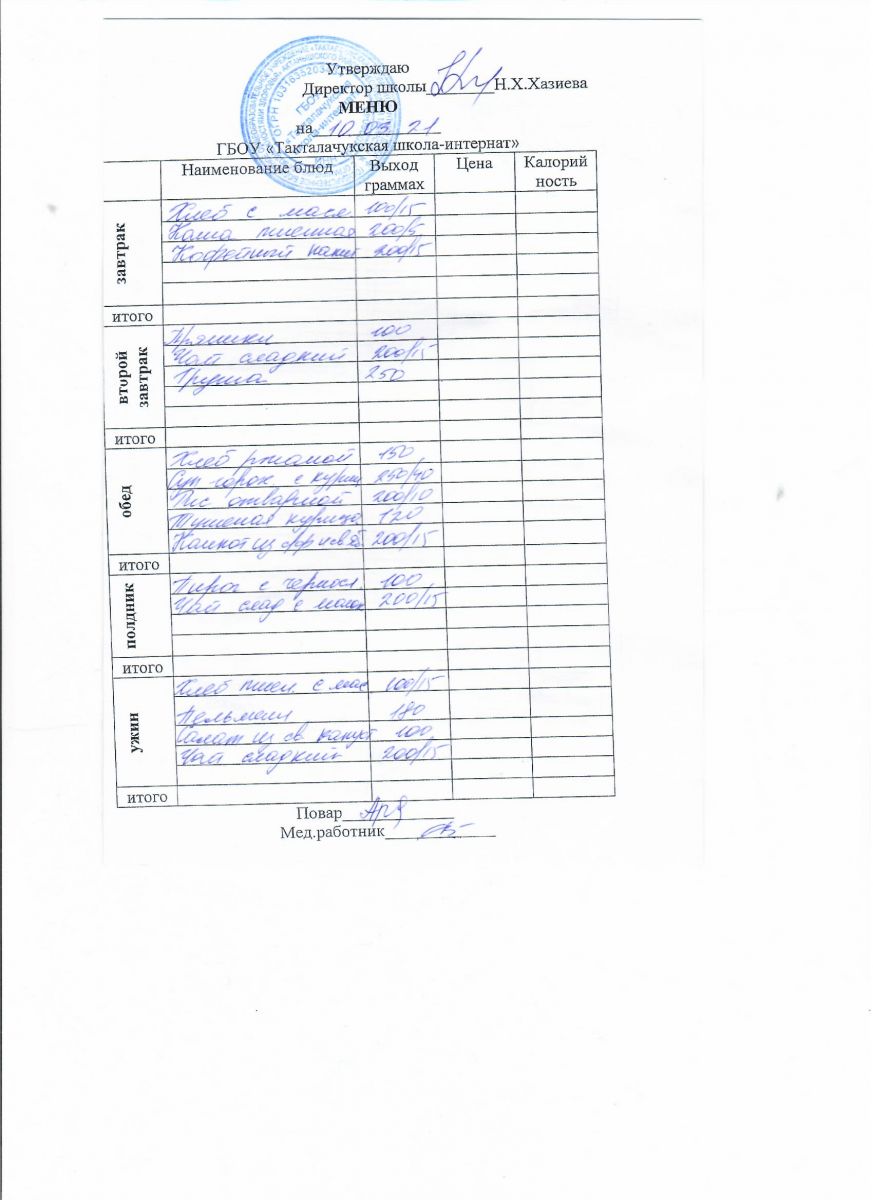 Утверждаю
Директор школы Н.Х.Хазиева
МЕНЮ
на 10 03 21
ГБОУ «Такталачукская школа-интернат»
Наименование блюд Выход граммах Цена Калорий ность
завтрак
Хлеб с масл 100/15
Каша пшенная 200/5
Кофейный напит 200/15
итого
второй завтрак
Пряники 100
Чай сладкий 200/15
Груша 250
итого
обед
Хлеб ржаной 150
Суп горох с куриц 250/40
Рис отварной 200/10
Тушеная курица 120
Компот из 200/15
итого
полдник
Пирог с чернося. 100
Чай слад с молок 200/15
итого
ужин
Хлеб пшен с мас 100/15
Пельмени 180
Салат из св капуст 100
Чай сладкий 200/15
итого
Повар
Мед.работник